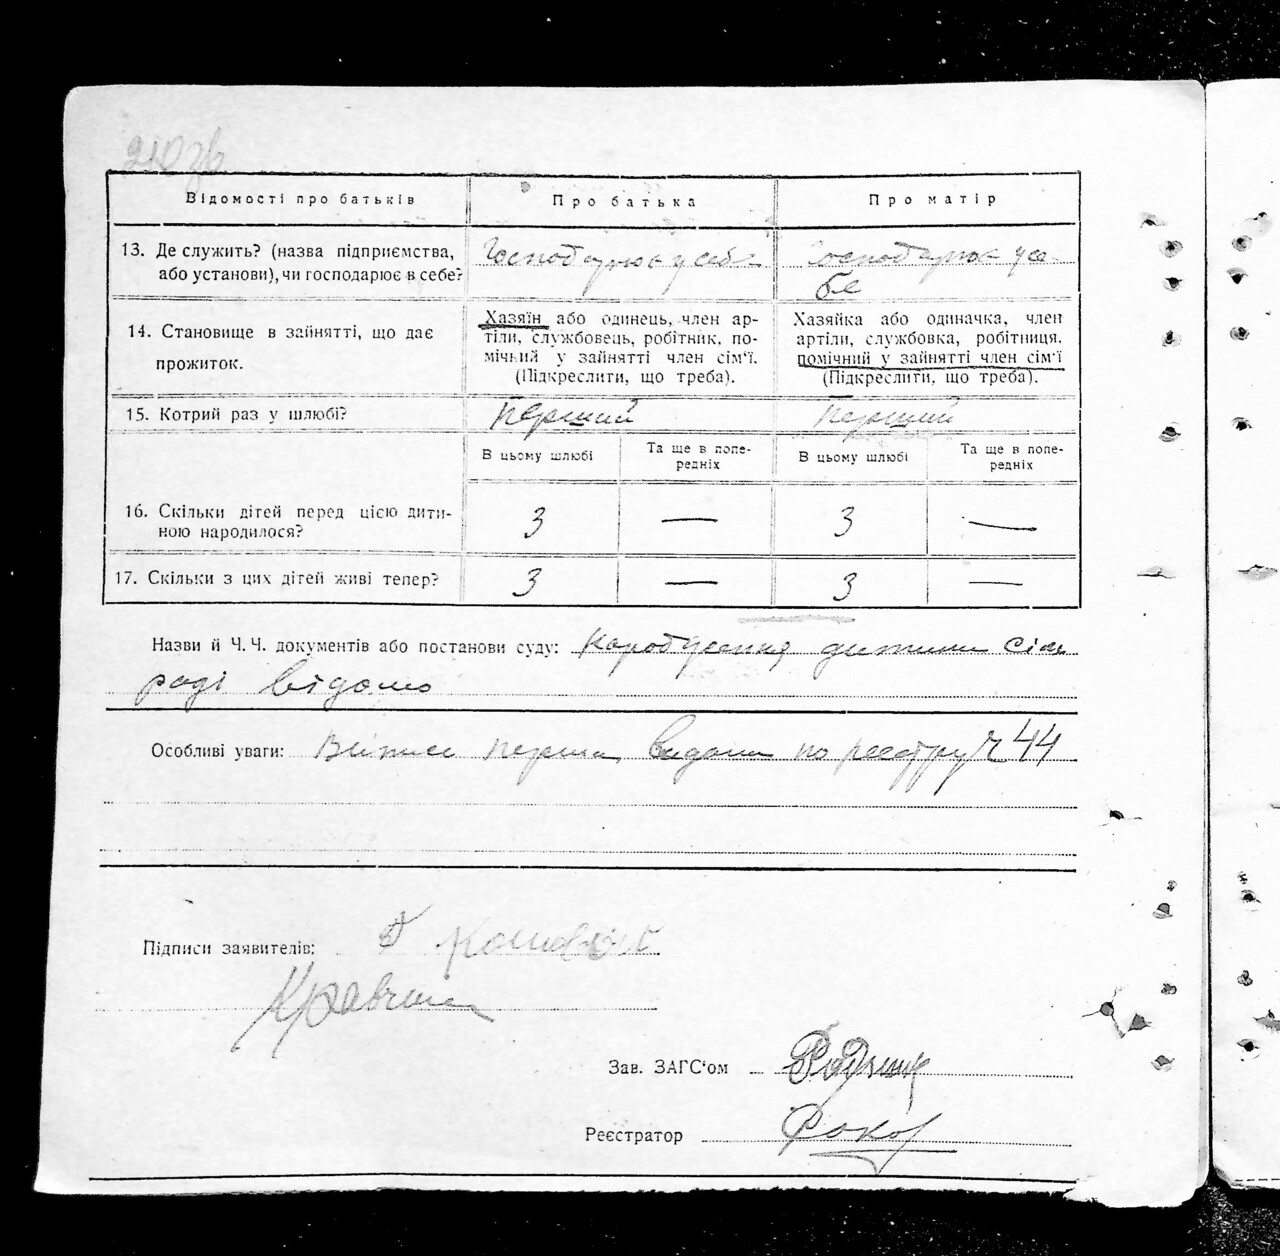 210 зв
Відомості про батьків
Про батька
Про матір
13. Де служить? (назва підприємства, або установи), чи господарює в себе?
Господарює у себе
Господарює у се-
бе
14. Становище в зайнятті, що дає прожиток.
Хазяїн або одинець, член ар-
тіли, службовець, робітник, по-
мічний у зайнятті член сім'ї.
(Підкреслити, що треба).
Хазяйка або одиначка, член
артіли, службовка, робітниця.
помічний у зайнятті член сім'ї
(Підкреслити, що треба).
15. Котрий раз у шлюбі?
Перший
Перший
В цьому шлюбі
Та ще в попе-
редніх
В цьому шлюбі
Та ще в попе-
редніх
16. Скільки дітей перед цією дити-
ною народилося?
3
—
3
—
17. Скільки з цих дітей живі тепер?
3
—
3
—
Назви й Ч. Ч. документів або постанови суду: народження дитини сіль
раді відомо
Особливі уваги: видана по реєстру 44
Підписи заявителів:
Зав. ЗАГС'ом
Реєстратор